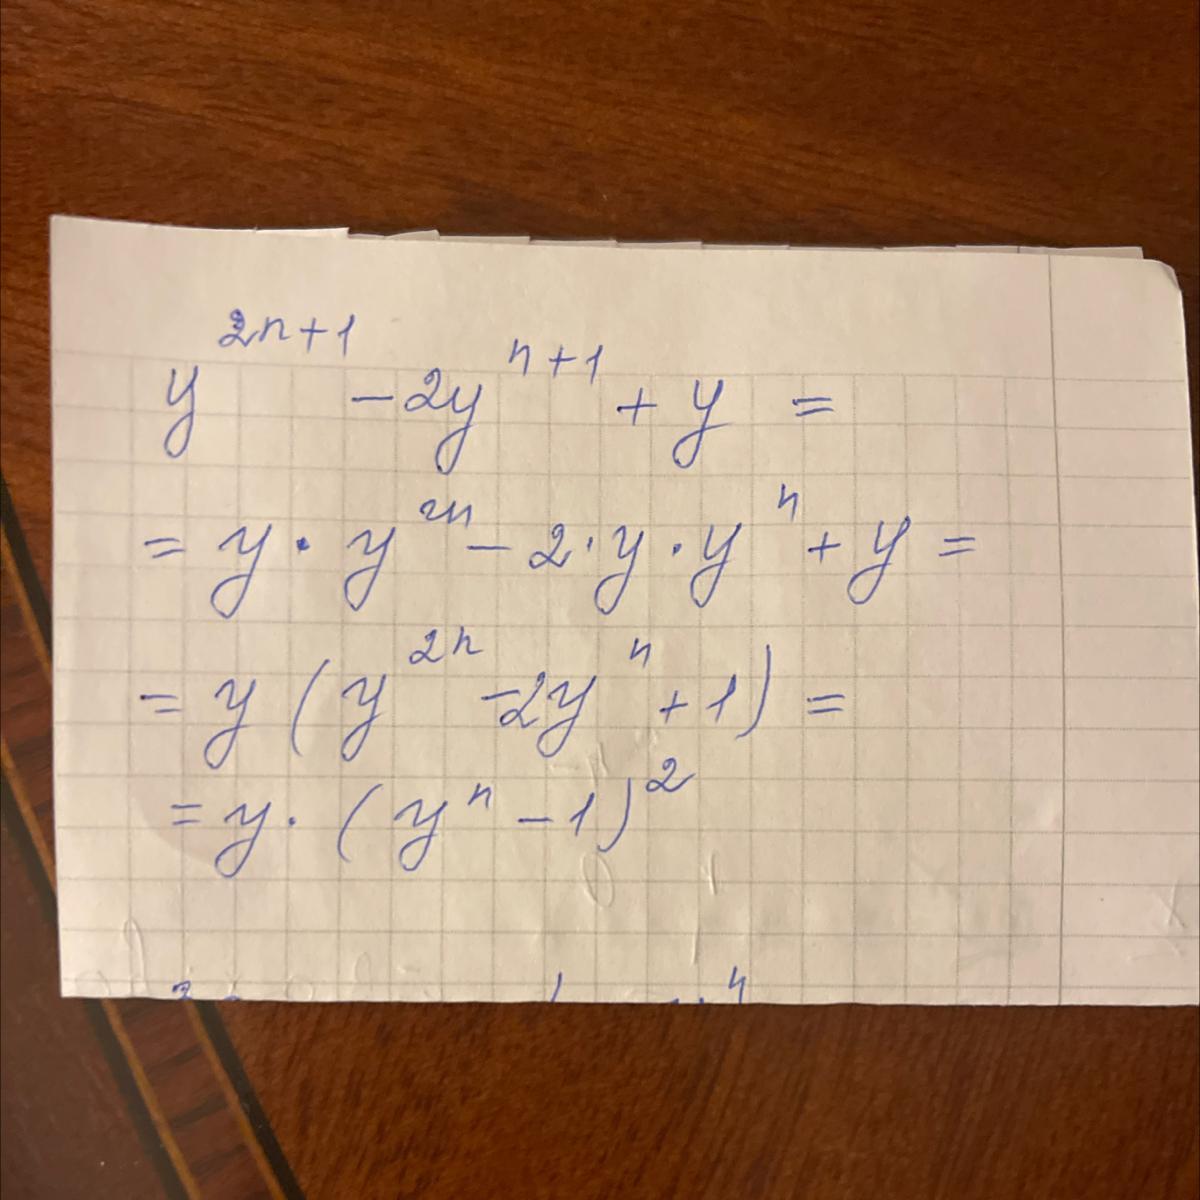 y^{2n+1} - 2y^{n+1} + y =
= y · y^{2n} - 2 · y · y^{n} + y =
= y (y^{2n} - 2y^{n} + 1) =
= y · (y^{n} - 1)^{2}